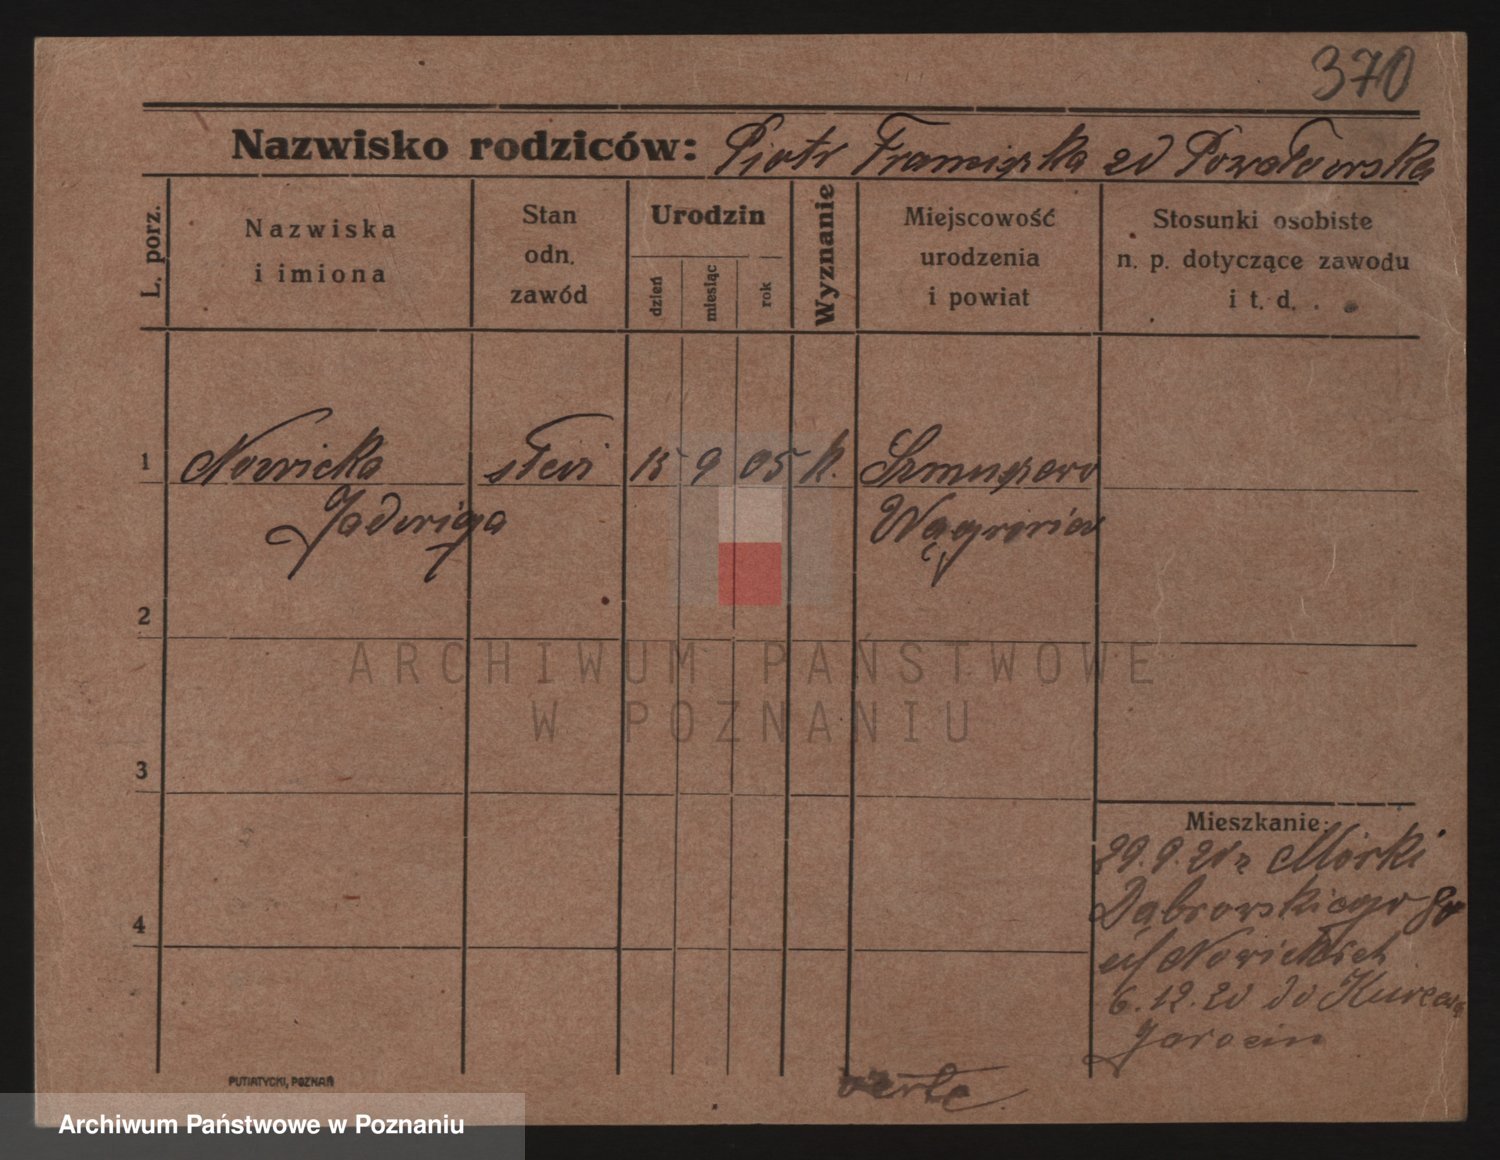 370
Nazwisko rodziców: Piotr Franciszka zd Powałowska
L. porz.
Nazwiska
i imiona
Stan
odn.
zawód
Urodzin
dzień
miesiąc
rok
Wyznanie
Miejscowość
urodzenia
i powiat
Stosunki osobiste
n. p. dotyczące zawodu
i t. d.
1 Nowicka 15 9 05 k.
Jadwiga Wągrowiec
2
ARCHIWUM PAŃSTWOWE
W POZNANIU
3
Mieszkanie:
29.9. z Mórki
4 Dąbrowskiego
Nowickich
6.12.20 do
Jarocin
verte
PUTIATYCKI, POZNAŃ
Archiwum Państwowe w Poznaniu